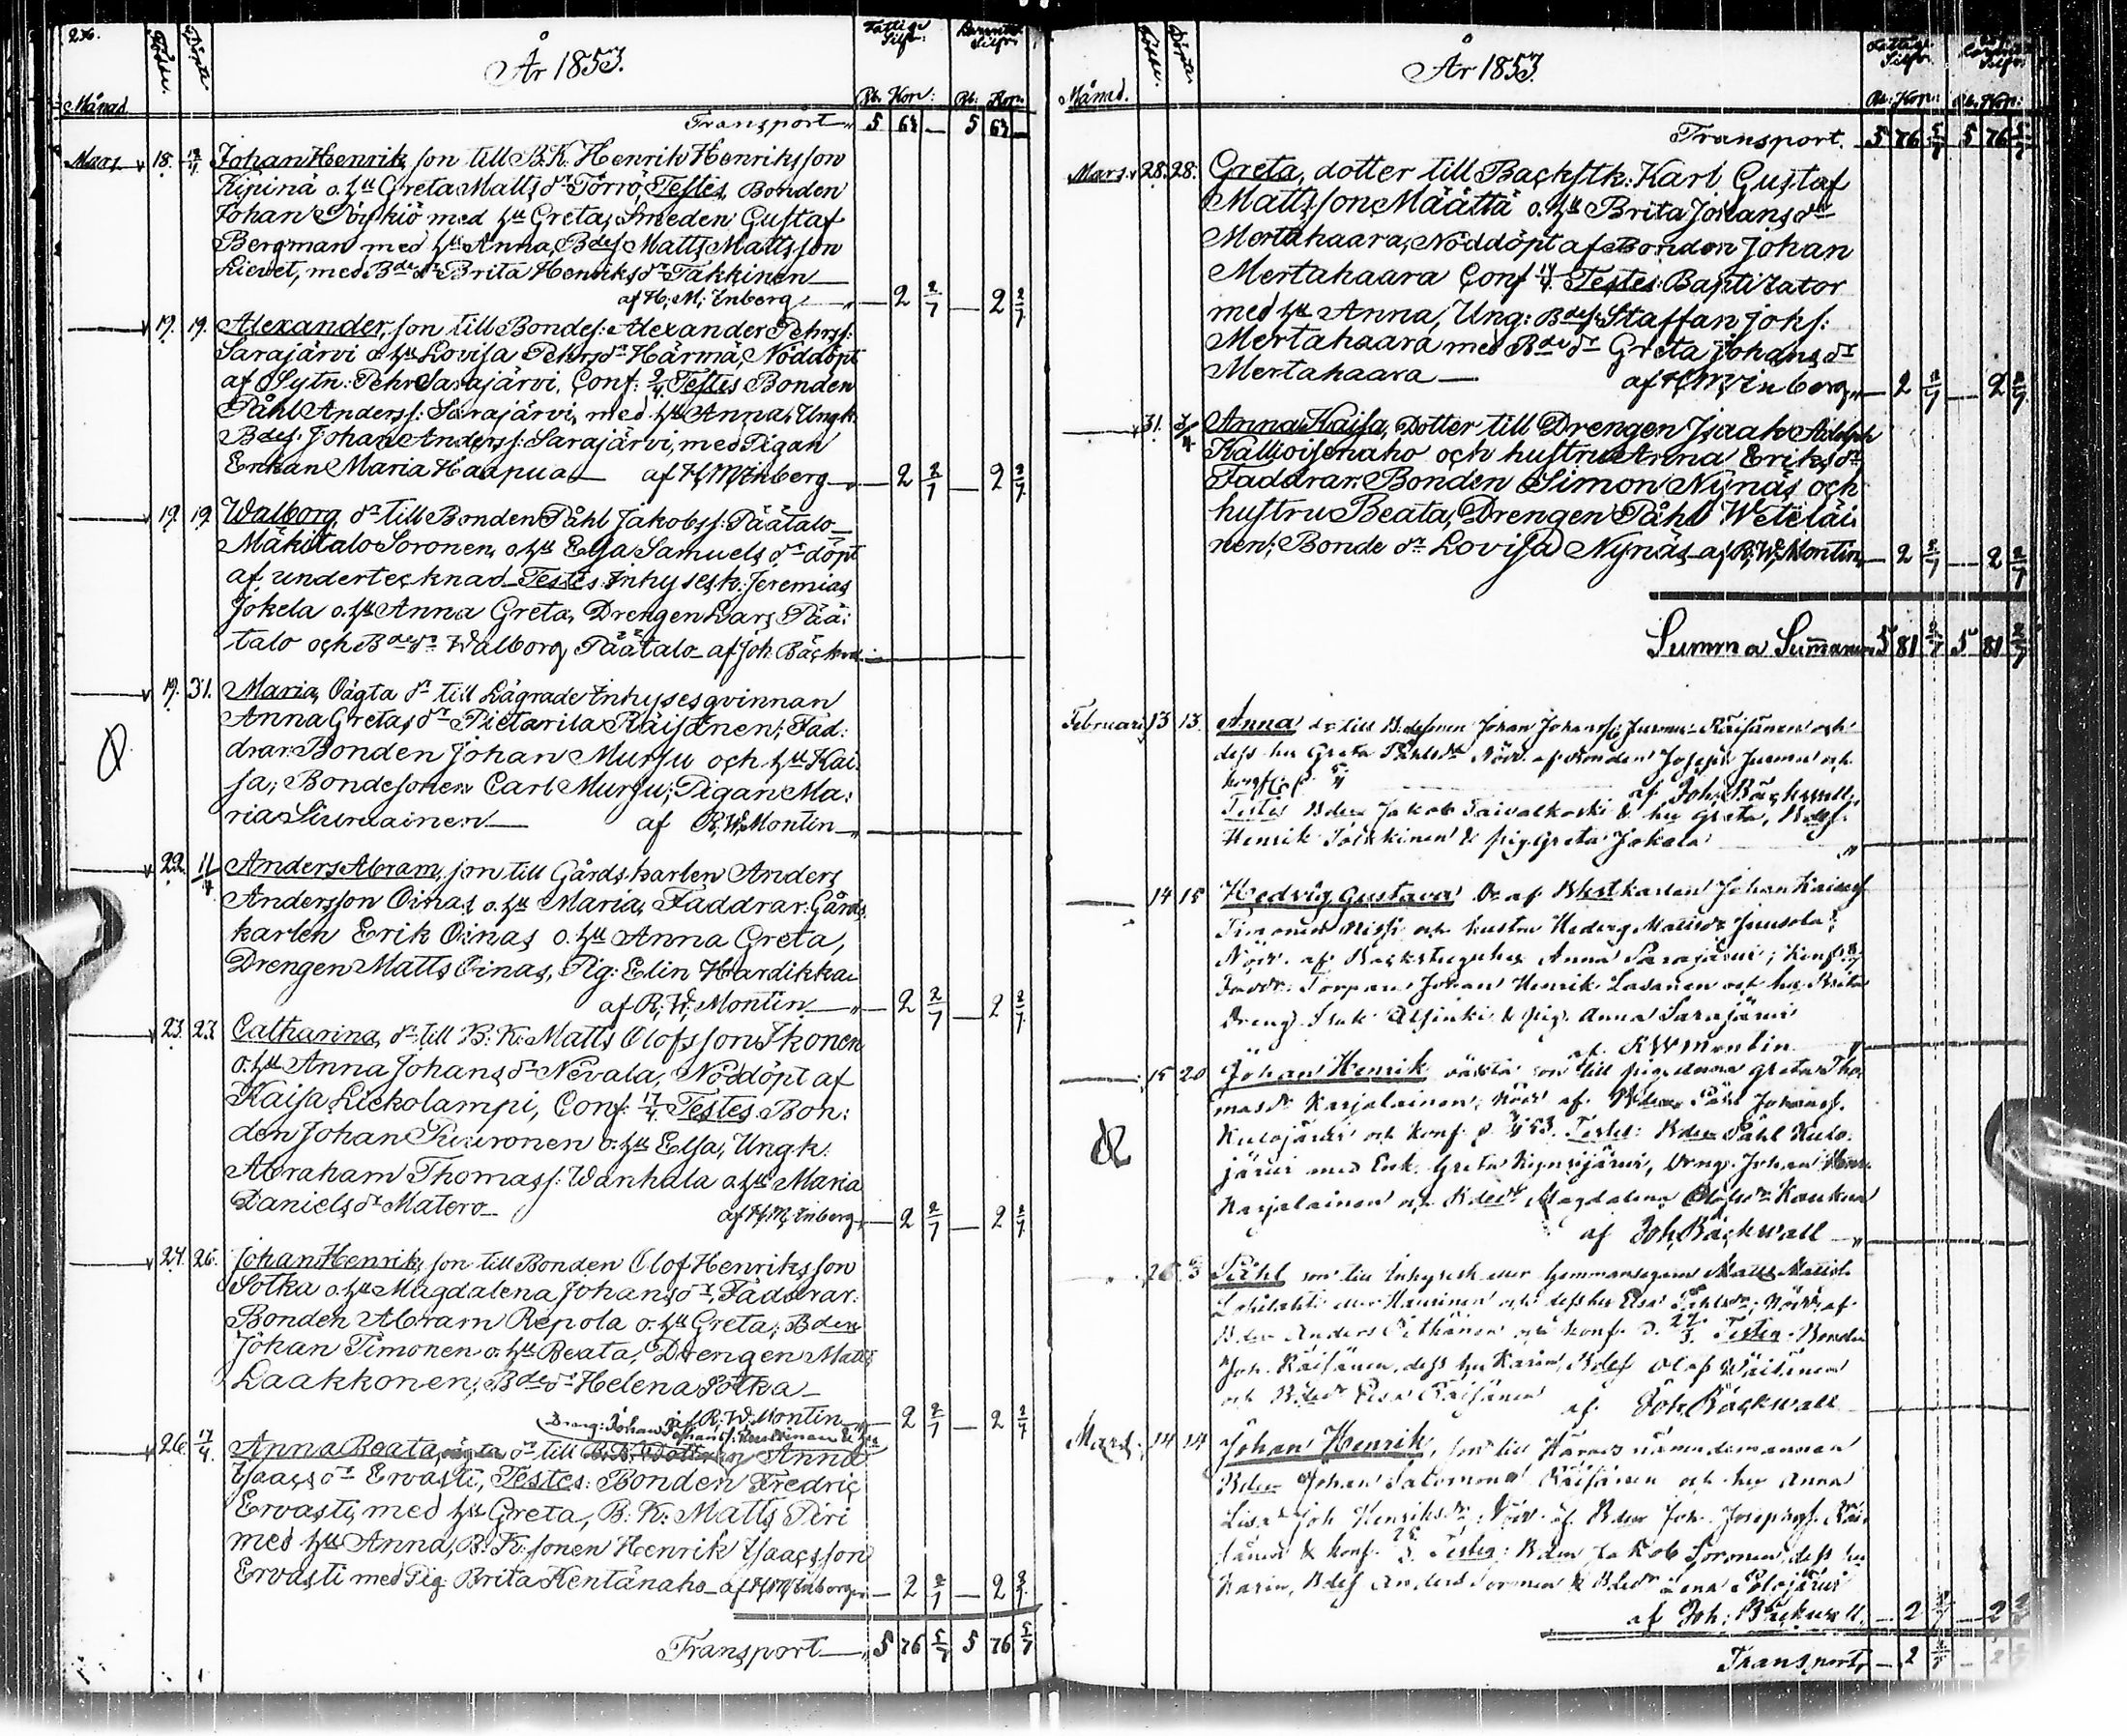 236.
Födde.
Döpte
År 1853.
Fattige Silfr:
Silfr:
Månad
Rb. Kop: Rb: Kop:
Transport 5 63 — 5 63 —
Mars 18. Johan Henrik, son till B.K. Henrik Henriksson
Kipinä o. hu Greta Matts dr Törrö, Testes, Bonden
Johan med hu Greta, Smeden Gustaf
Bergman med hu Anna, Bdes. Matts Mattsson
Lievet, med Bde dr Brita Henriks dr Takkinen —
af H: M: Enberg — 2 2/7 — 2 2/7
19. 19. Alexander, son till Bondes: Alexander Pehrss:
Sarajärvi o hu Lovisa Pehrs dr Härmä, Nöddöpt
af Sytn: Pehr Sarajärvi, Conf: 9/4 Testes Bonden
Påhl Anderss: Sarajärvi, med hu Anna, Ungk.
Bdes. Johan Anderss: Sarajärvi, med Pigan
Enkan Maria Haapua — af H M Enberg — 2 2/7 — 2 2/7
19. 19. Walborg, dr till Bonden Påhl Jakobss: Päätalo
Mäkitalo Soronen, o. hu Elsa Samuels dr döpt
af undertecknad Testes: Inhysesk: Jeremias
Jokela o. hu Anna Greta, Drengen Lars Pää:
talo och Bde dr Walborg Päätalo af Joh. Bäckvall
19. 31. Maria, Oägta dr till Lägrade Inhysesqvinnan
Anna Gretas dr Pietarila Räisänen; Fad:
drar: Bonden Johan Mursu och hu Kai:
sa; Bondesonen Carl Mursu; Pigan Ma:
ria Siuruainen — af R. W. Montin
22. 11/4 Anders Abram, son till Gårdskarlen Anders
Andersson Oinas o. hu Maria, Faddrar: Gårds
karlen Erik Oinas o. hu Anna Greta,
Drengen Matts Oinas, Pig: Elin Hardikka
af R. W. Montin — 2 2/7 — 2 2/7
23. 23. Catharina, dr till B: K: Matts Olofsson Ikonen
o. hu Anna Johans dr Nevala, Nöddöpt af
Kaisa Lickolampi, Conf: 17/4 Testes: Bon:
den Johan Puuronen o. hu Elsa, Ungk.
Abraham Thomass: Wanhala o hu Maria
Daniels dr Matero — af H. M. Enberg — 2 2/7 — 2 2/7
24. 26. Johan Henrik, son till Bonden Olof Henriksson
Sotka o. hu Magdalena Johans dr, Faddrar:
Bonden Abram Repola o. hu Greta, Bden
Johan Timonen o. hu Beata, Drengen Matts
Laakkonen; Bde dr Helena Sotka —
af R. W. Montin — 2 2/7 — 2 2/7
26. 17/4 Anna Beata, oägta dr till Anna
Isaacs dr Ervasti, Testes: Bonden Fredric
Ervasti, med hu Greta, B: K: Matts Piri
med hu Anna, B: K: sonen Henrik Isaacsson
Ervasti med Pig. Brita Kentänaho af H M Enberg — 2 2/7 — 2 2/7
Transport — 5 76 5/7 5 76 5/7
Födde.
Döpte
År 1853.
Fattige Silfr:
Månad.
Rb: Kop:
Transport. 5 76 5/7 5 76 5/7
Mars. 28. 28. Greta, dotter till Backstk: Karl Gustaf
Mattsson Määttä o. hu Brita Johans dr
Mertahaara, Nöddöpt af Bonden Johan
Mertahaara Conf 17/4. Testes: Baptizator
med hu Anna, Ung: Bdes: Staffan Johs:
Mertahaara med Bde dr Greta Johans dr
Mertahaara — af H M Enberg — 2 2/7 — 2 2/7
31. 3/4 Anna Kaisa, Dotter till Drengen Isaak Adolph
Kallioisenaho och hustru Anna Eriks dr
Faddrar: Bonden Simon Nynäs och
hustru Beata, Drengen Påhl Weteläi:
nen; Bonde dr Lovisa Nynäs af R. W. Montin — 2 2/7 — 2 2/7
Summa Summarum 5 81 2/7 5 81 2/7
Februari 13 13. Anna dr till Bdesonen Johan Johanss: Juruma Räisänen och
dess hu Greta Påhlsdr Nödd. af Bonden Joseph Juuma och
af Joh: Bäckwall
Testes Bden Jakob Taivalkoski & hu Greta, Bdes.
Henrik Törkkinen & pig. Greta Jokela
14 15 Hedvig Gustava Dr af Johan
och hustru Hedvig Juusola;
Nödd. af Anna Sarajärvi; Konf.
Fadd: Torpare Johan Henrik Lasanen och hu Brita
Dreng. Isak Alsinki & pig. Anna Sarajärvi
af R W Montin
15 20 Johan Henrik oäkta son till pig. Anna Greta Tho
masdr Karjalainen; Nödd af Bden Påhl
Kulojärvi och Konf. d. 53. Testes: Bden Påhl Kulo:
järvi med Enk. Greta Kynsijärvi, Dreng. Johan
Karjalainen och Bdedr Magdalena Olofsdr
af Joh. Bäckwall
Påhl son till Inhysesk eller hemmansegare Matts
eller och dess hu Elsa Påhlsdr; Nödd. af
Bden Anders Pitkänen och konf. d. Testes: Bonden
Joh. Räisänen, dess hu Karin, Bdes Olof Wäisänen
och Bdedr Elsa Räisänen
af Joh. Bäckwall
Mars. 14 14 Johan Henrik, son till Härads nämndemannen
Bden Johan Salomons Räisänen och hu Anna
Lisa Joh Henriksdr; Nödd. af Bden Joh. Josephss. Räi:
sänen & Konf. Testes: Bden Jakob Soronen, dess hu
Karin, Bdes Anders Soronen & Bdedr Lena Polojärvi
af Joh: Bäckwall — 2 2/7 — 2 2/7
Transport — 2 2/7 — 2